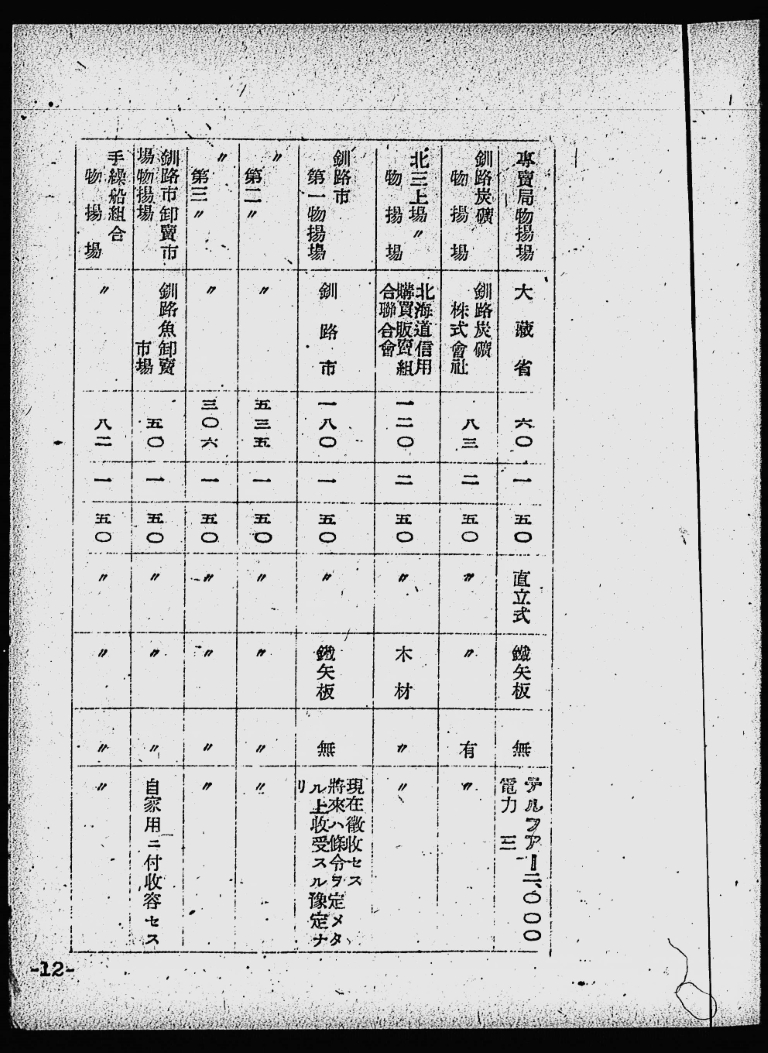 專賣局物揚場
大藏省
六〇
一
五〇
直立式
鐵矢板
無
テルフアー二、〇〇〇
電力 三
釧路炭礦
物揚場
釧路炭礦
株式會社
八三
二
五〇
〃
〃
有
〃
北三上場〃
物揚場
北海道信用
購買販賣組
合聯合會
一二〇
二
五〇
〃
木材
〃
〃
釧路市
第一物揚場
釧路市
一八〇
一
五〇
〃
鐵矢板
無
現在徵收セス
將來ハ條令ヲ定メタ
ル上收受スル豫定ナ
リ
〃
第二〃
〃
五三五
一
五〇
〃
〃
〃
〃
〃
第三〃
〃
三〇六
一
五〇
〃
〃
〃
〃
釧路市卸賣市
場物揚場
釧路魚卸賣
市場
五〇
一
五〇
〃
〃
〃
自家用ニ付收容セス
手繰船組合
物揚場
〃
八二
一
五〇
〃
〃
〃
〃
-12-